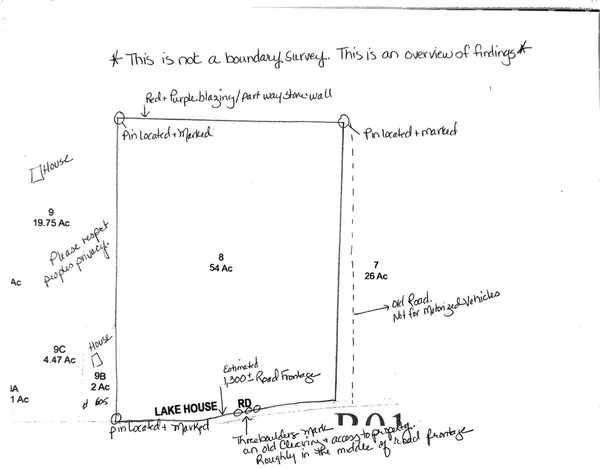 * This is not a boundary survey. This is an overview of findings *
Red + Purple blazing / part way stone wall
Pin Located + Marked
Pin Located + marked
House
9
19.75 Ac
Please respect
peoples privacy.
8
54 Ac
7
26 Ac
Ac
Old Road.
Not for Motorized Vehicles
House
9C
4.47 Ac
9B
2 Ac
Estimated
1,300 ± Road Frontage
1 Ac
LAKE HOUSE RD
pin Located + Marked
Three boulders Mark
an old Clearing + access to property.
Roughly in the middle of road frontage